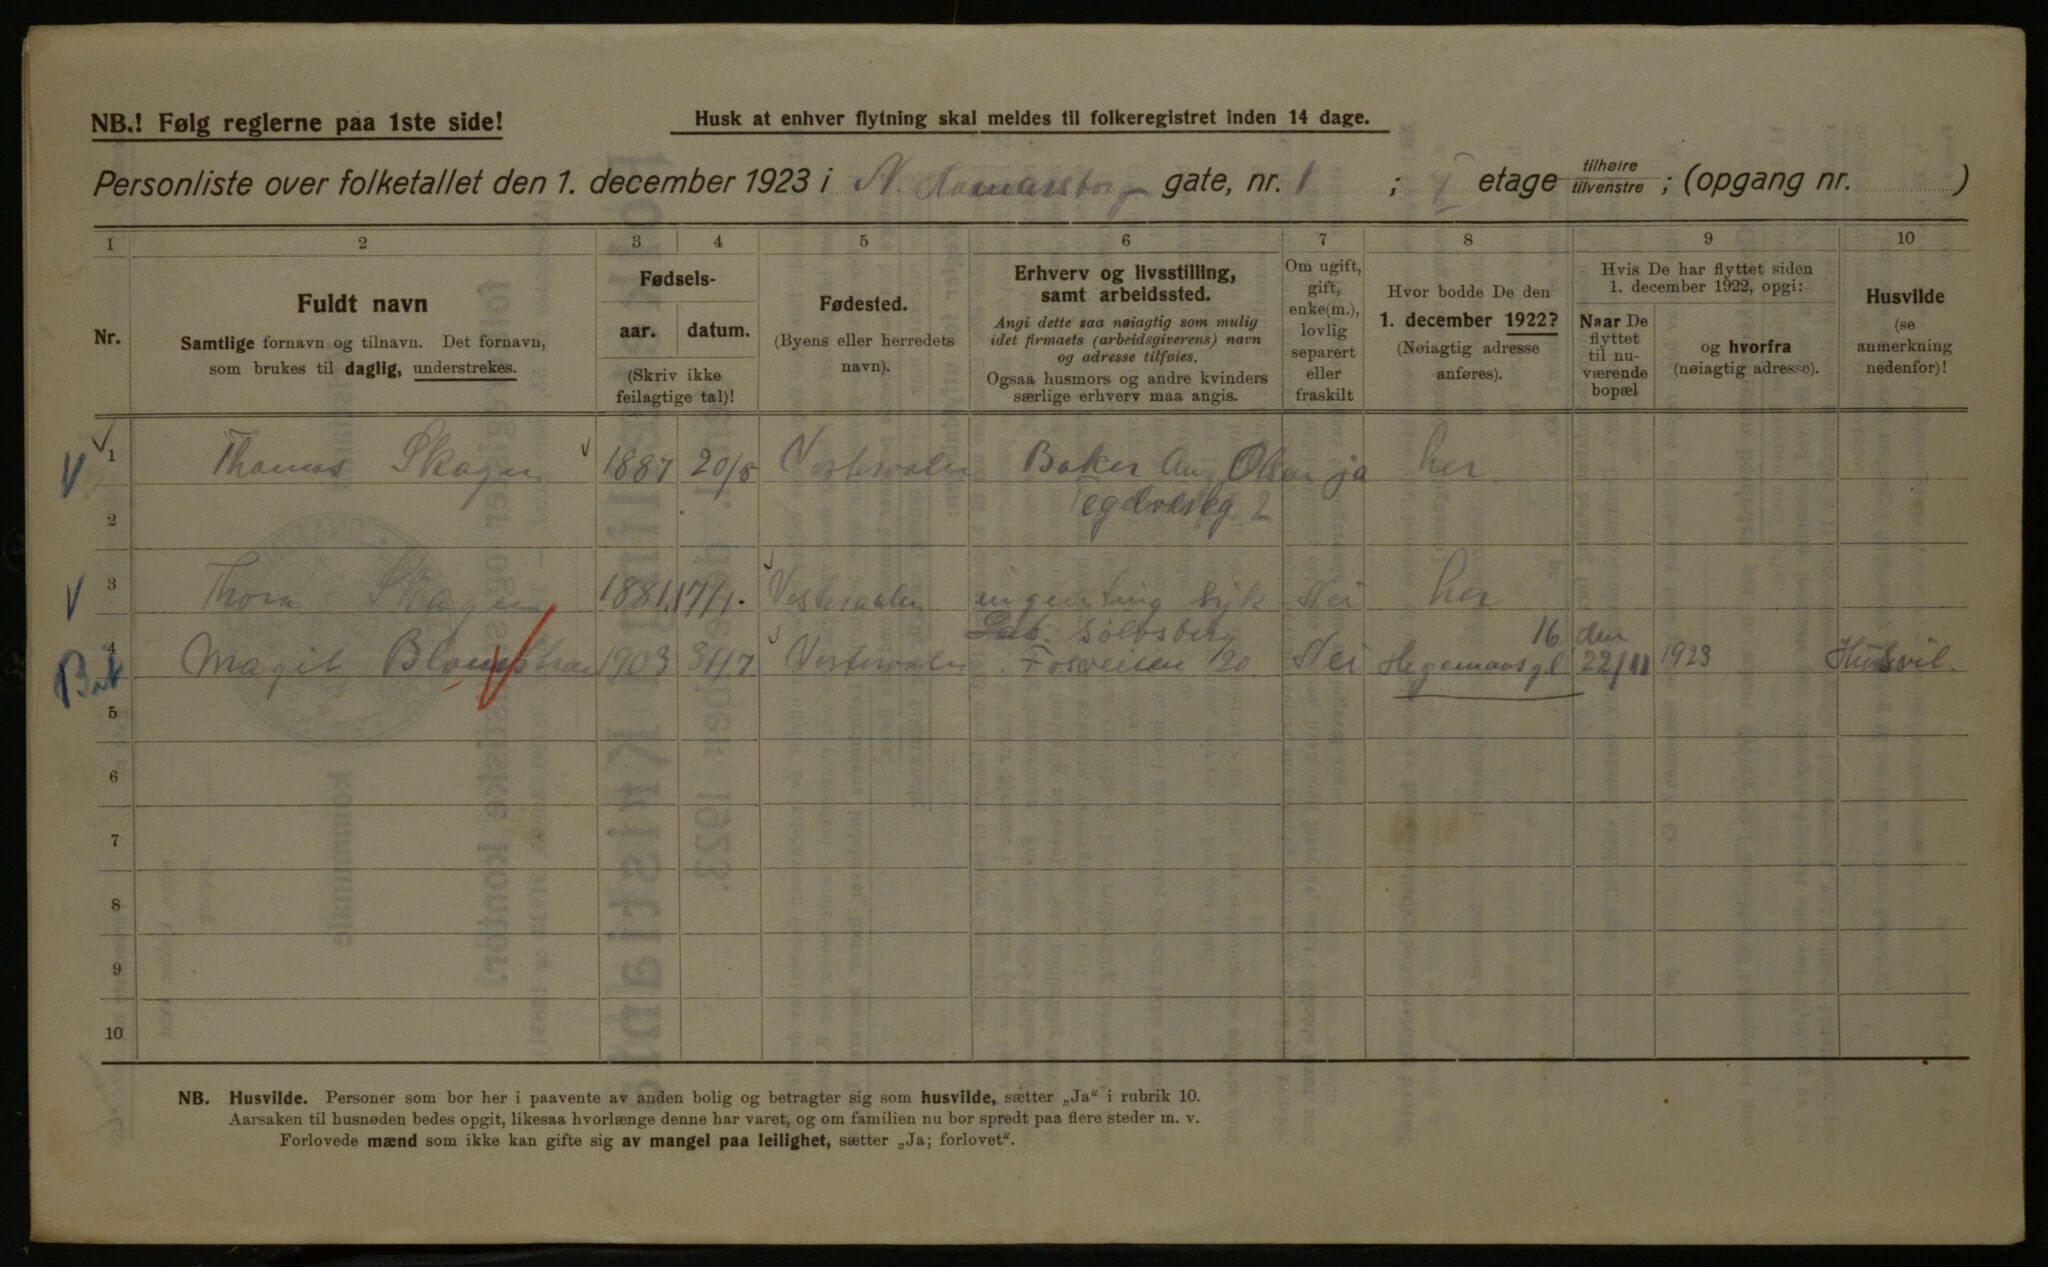 NB.! Følg reglerne paa 1ste side!
Husk at enhver flytning skal meldes til folkeregistret inden 14 dage.
Personliste over folketallet den 1. december 1923 i N. Hamarsborg gate, nr. 1 ; I etage tilhøire tilvenstre ; (opgang nr. )
1 2 3 4 5 6 7 8 9 10
Nr.
Fuldt navn
Samtlige fornavn og tilnavn. Det fornavn,
som brukes til daglig, understrekes.
Fødsels-
aar. datum.
(Skriv ikke
feilagtige tal)!
Fødested.
(Byens eller herredets
navn).
Erhverv og livsstilling,
samt arbeidssted.
Angi dette saa nøiagtig som mulig
idet firmaets (arbeidsgiverens) navn
og adresse tilføies.
Ogsaa husmors og andre kvinders
særlige erhverv maa angis.
Om ugift,
gift,
enke(m.),
lovlig
separert
eller
fraskilt
Hvor bodde De den
1. december 1922?
(Nøiagtig adresse
anføres).
Hvis De har flyttet siden
1. december 1922, opgi:
Naar De
flyttet
til nu-
værende
bopæl
og hvorfra
(nøiagtig adresse).
Husvilde
(se
anmerkning
nedenfor)!
1 Thomas Skagen 1887 20/8 Vesteraalen Baker Olsen ja her
2 2
3 Thora Skagen 1881 17/1. Vesteraalen ingenting syk Nei her
Sølvsberg 16 den
4 Magit 1903 31/7 Vesteraalen 20 Nei Hegemansgt 22/11 1923 Husvil.
5
6
7
8
9
10
NB. Husvilde. Personer som bor her i paavente av anden bolig og betragter sig som husvilde, sætter „Ja" i rubrik 10.
Aarsaken til husnøden bedes opgit, likesaa hvorlænge denne har varet, og om familien nu bor spredt paa flere steder m. v.
Forlovede mænd som ikke kan gifte sig av mangel paa leilighet, sætter „Ja; forlovet".